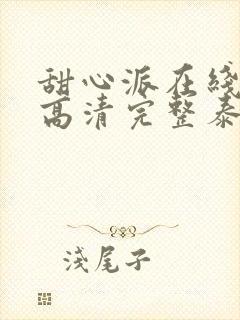 甜心派在綫
高清完整泰
淺尾子